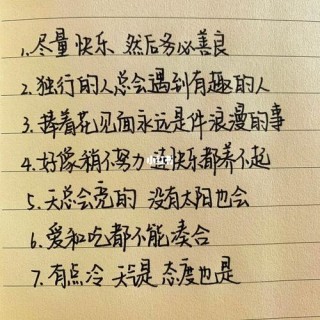 1.尽量快乐 然后务必善良
2.独行的人总会遇到有趣的人
3.捧着花见面永远是件浪漫的事
4.好像稍不努力 连快乐都养不起
5.天总会亮的 没有太阳也会
6.爱和吃都不能凑合
7.有点冷 天气是 态度也是